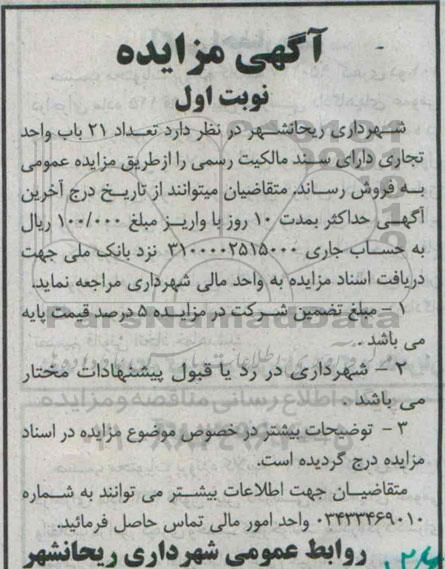 آگهی مزایده
نوبت اول
شهرداری ریحانشهر در نظر دارد تعداد ۲۱ باب واحد
تجاری دارای سند مالکیت رسمی را ازطریق مزایده عمومی
به فروش رساند. متقاضیان میتوانند از تاریخ درج آخرین
آگهی حداکثر بمدت ۱۰ روز با واریز مبلغ ۱۰۰/۰۰۰ ریال
به حساب جاری ۳۱۰۰۰۰۲۵۱۵۰۰۰ نزد بانک ملی جهت
دریافت اسناد مزایده به واحد مالی شهرداری مراجعه نماید.
۱ – مبلغ تضمین شرکت در مزایده ۵ درصد قیمت پایه
می باشد .
۲ – شهرداری در رد یا قبول پیشنهادات مختار
می باشد .
۳ – توضیحات بیشتر در خصوص موضوع مزایده در اسناد
مزایده درج گردیده است.
متقاضیان جهت اطلاعات بیشتر می توانند به شماره
۰۳۴۳۳۴۶۹۰۱۰ واحد امور مالی تماس حاصل فرمائید.
روابط عمومی شهرداری ریحانشهر
ParsNamadData